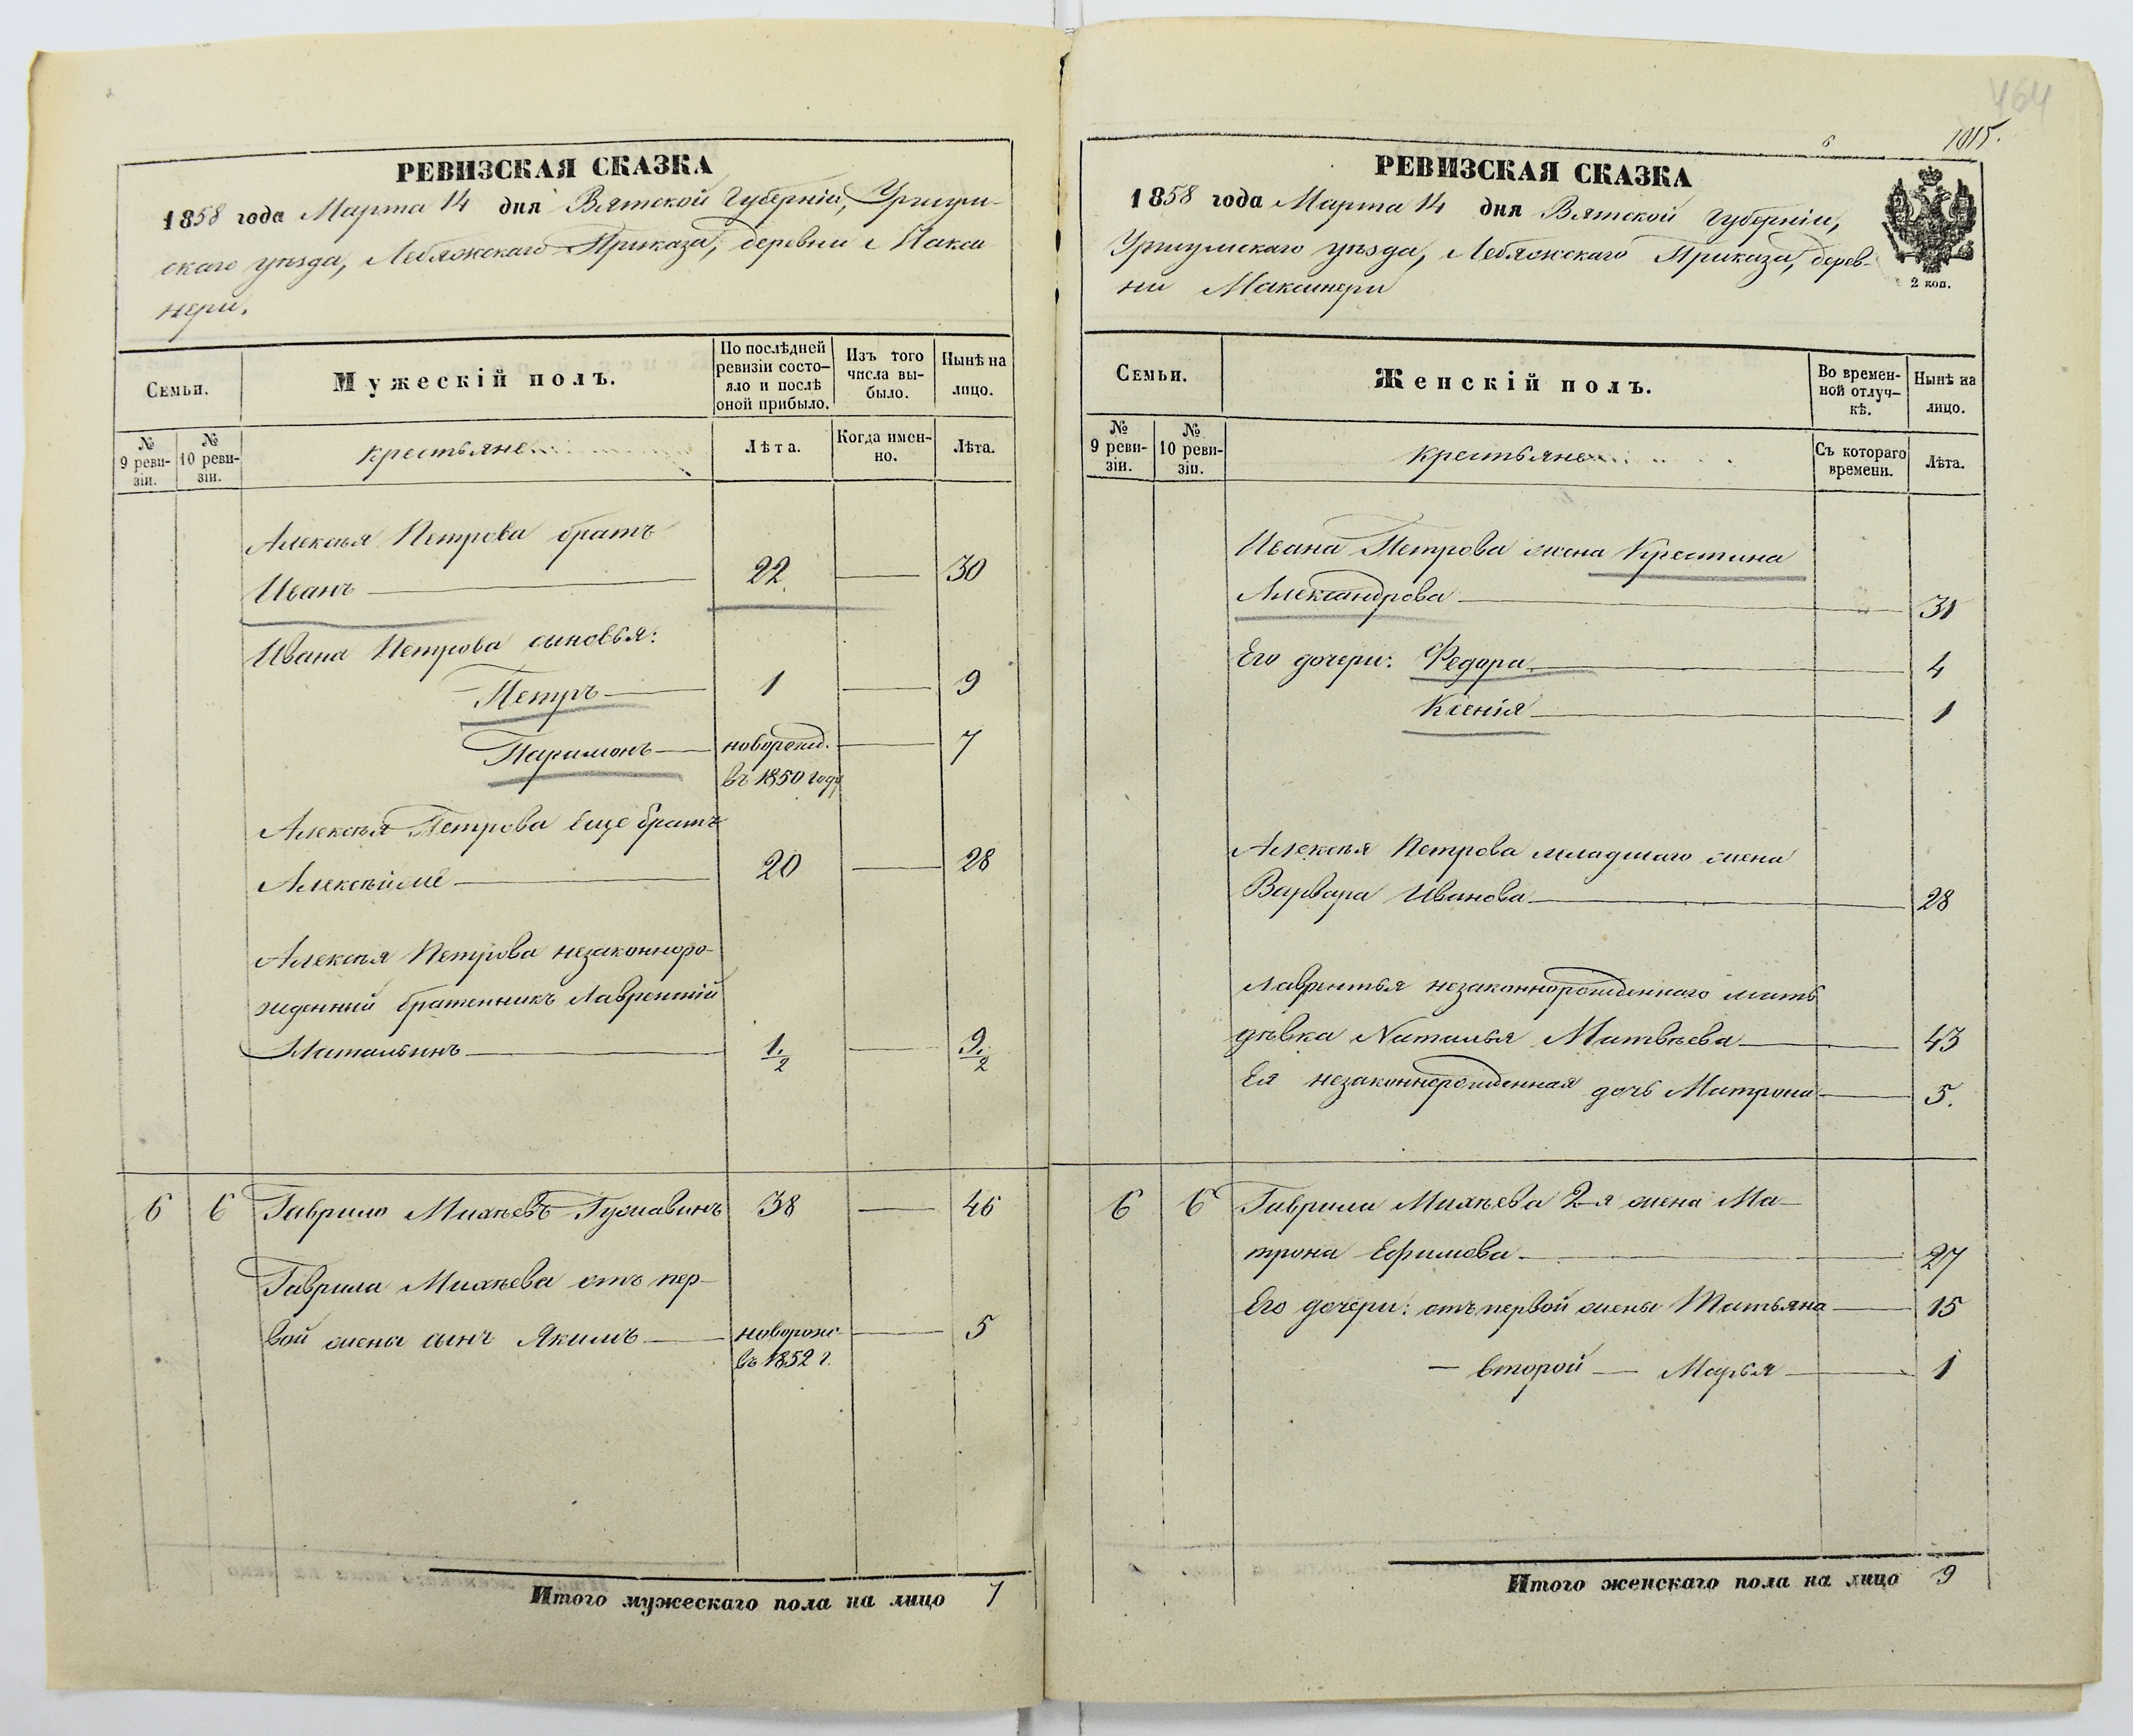 РЕВИЗСКАЯ СКАЗКА
1858 года Марта 14 дня Вятской Губерніи, Уржум-
скаго уѣзда, Лебяжскаго Приказа, деревни Макси
нери.
Семьи.
Мужескій полъ.
По послѣдней
ревизіи состо-
яло и послѣ
оной прибыло.
Изъ того
числа вы-
было.
Нынѣ на
лицо.
№
9 реви-
зіи.
№
10 реви-
зіи.
крестьяне
Лѣта.
Когда имен-
но.
Лѣта.
Алексѣя Петрова братъ
Иванъ 22 30
Ивана Петрова сыновья:
Петръ 1 9
Парамонъ новорожд. 7
въ 1850 году
Алексѣя Петрова еще братъ
Алексѣй же 20 28
Алексѣя Петрова незаконноро-
жденный братенникъ Лаврентій
Натальинъ 1 1/2 9 1/2
6 6 Гаврило Михѣевъ 38 46
Гаврила Михѣева отъ пер-
вой жены сынъ Якимъ новорожд 5
въ 1852 г.
Итого мужескаго пола на лицо 7
464
6
1015.
РЕВИЗСКАЯ СКАЗКА
1858 года Марта 14 дня Вятской Губерніи,
Уржумскаго уѣзда, Лебяжскаго Приказа, дерев-
ни Максинери
2 коп.
Семьи.
Женскій полъ.
Во времен-
ной отлуч-
кѣ.
Нынѣ на
лицо.
№
9 реви-
зіи.
№
10 реви-
зіи.
крестьяне
Съ котораго
времени.
Лѣта.
Ивана Петрова жена Крестина
Александрова 31
Его дочери: Федора 4
Ксенія 1
Алексѣя Петрова младшаго жена
Варвара Иванова 28
Лаврентья незаконнорожденнаго мать
дѣвка Наталья Матвѣева 43
Ея незаконнорожденная дочь Матрона 5.
6 6 Гаврила Михѣева 2-я жена Ма-
трона Ефимова 27
Его дочери: отъ первой жены Татьяна 15
— второй — Марья 1
Итого женскаго пола на лицо 9